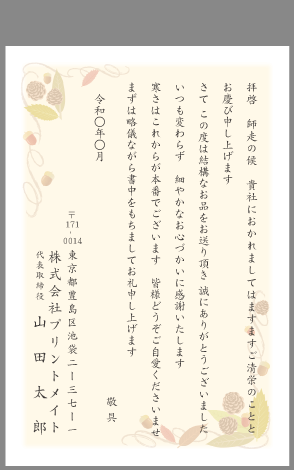 拝啓　師走の候　貴社におかれましてはますますご清栄のことと
お慶び申し上げます
さて この度は結構なお品をお送り頂き 誠にありがとうございました
いつも変わらず　細やかなお心づかいに感謝いたします
寒さはこれからが本番でございます　皆様どうぞご自愛くださいませ
まずは略儀ながら書中をもちましてお礼申し上げます
敬具
令和〇年〇月
〒171-0014
東京都豊島区池袋二ー三七ー一
株式会社プリントメイト
代表取締役　山田太郎